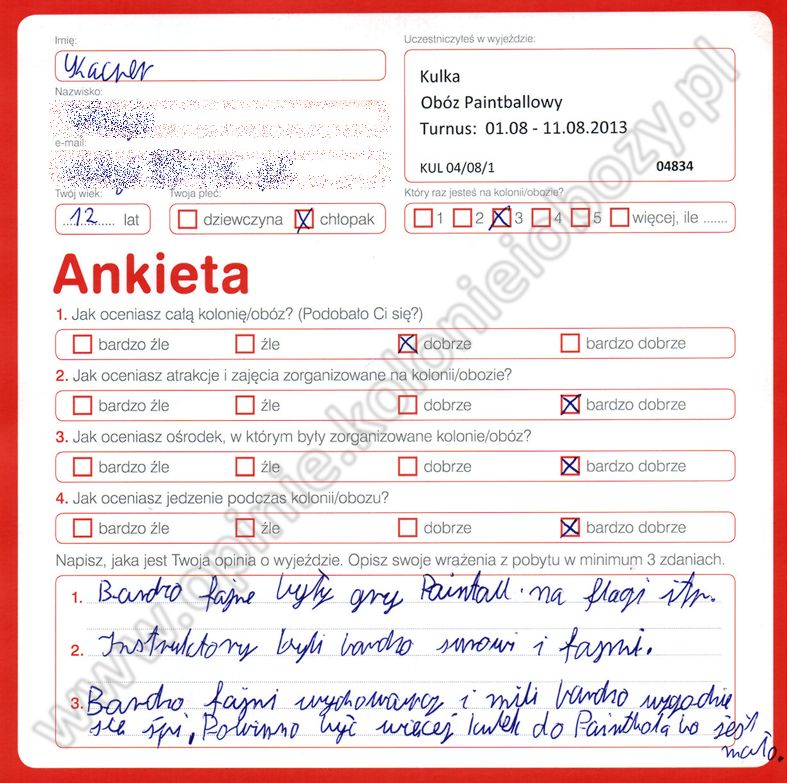 Imię:
Kacper
Nazwisko:
e-mail:
Twój wiek:
12 lat
Twoja płeć:
dziewczyna chłopak
Uczestniczyłeś w wyjeździe:
Kulka
Obóz Paintballowy
Turnus: 01.08 - 11.08.2013
KUL 04/08/1 04834
Który raz jesteś na kolonii/obozie?
1 2 3 4 5 więcej, ile .......
Ankieta
1. Jak oceniasz całą kolonię/obóz? (Podobało Ci się?)
bardzo źle źle dobrze bardzo dobrze
2. Jak oceniasz atrakcje i zajęcia zorganizowane na kolonii/obozie?
bardzo źle źle dobrze bardzo dobrze
3. Jak oceniasz ośrodek, w którym były zorganizowane kolonie/obóz?
bardzo źle źle dobrze bardzo dobrze
4. Jak oceniasz jedzenie podczas kolonii/obozu?
bardzo źle źle dobrze bardzo dobrze
Napisz, jaka jest Twoja opinia o wyjeździe. Opisz swoje wrażenia z pobytu w minimum 3 zdaniach.
1. Bardzo fajne były gry Paintall. na flagi itp.
2. Instruktorzy byli bardzo surowi i fajni.
3. Bardzo fajni wychowawcy i mili bardzo wygodnie
sie śpi, Powinno być wiecej kulek do Paintbola bo jest
mało.
www.opinie.kolonieiobozy.pl